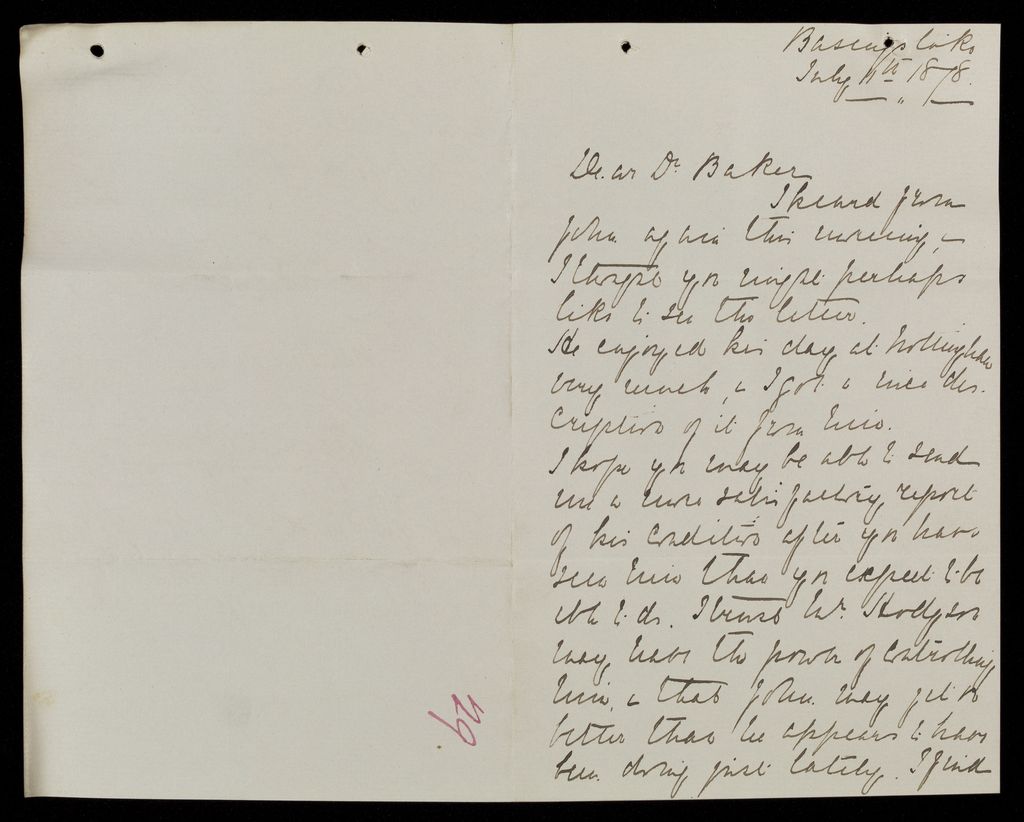 Basingstoke
July 11th 1878.
Dear Dr. Baker
I heard from
John again this morning, &
I thought you might perhaps
like to see the letter.
He enjoyed his day at Nottingham
very much, & I got a nice des-
cription of it from him.
I hope you may be able to send
me a more satisfactory report
of his condition after you have
seen him than you expect to be
able to do. I trust Mr. Hodgson
may have the power of controlling
him, & that John may get on
better than he appears to have
been doing just lately. I find
64